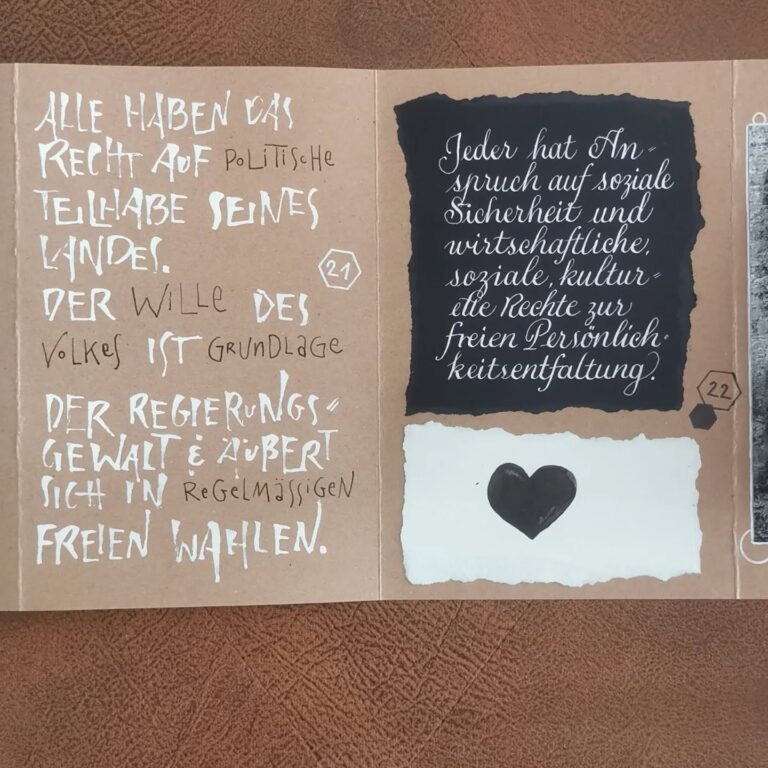 ALLE HABEN DAS
RECHT AUF POLITISCHE
TEILHABE SEINES
LANDES.
21
DER WILLE DES
VOLKES IST GRUNDLAGE
DER REGIERUNGS=
GEWALT & ÄUßERT
SICH IN REGELMÄSSIGEN
FREIEN WAHLEN.
Jeder hat An=
spruch auf soziale
Sicherheit und
wirtschaftliche,
soziale, kultur=
elle Rechte zur
freien Persönlich-
keitsentfaltung.
22